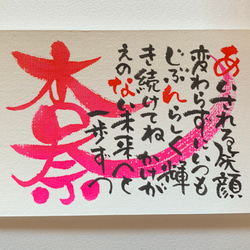 あいされる笑顔
変わらずいつも
じぶんらしく輝
き続けてねかけが
えのない未来へと
一歩ずつ
杏奈